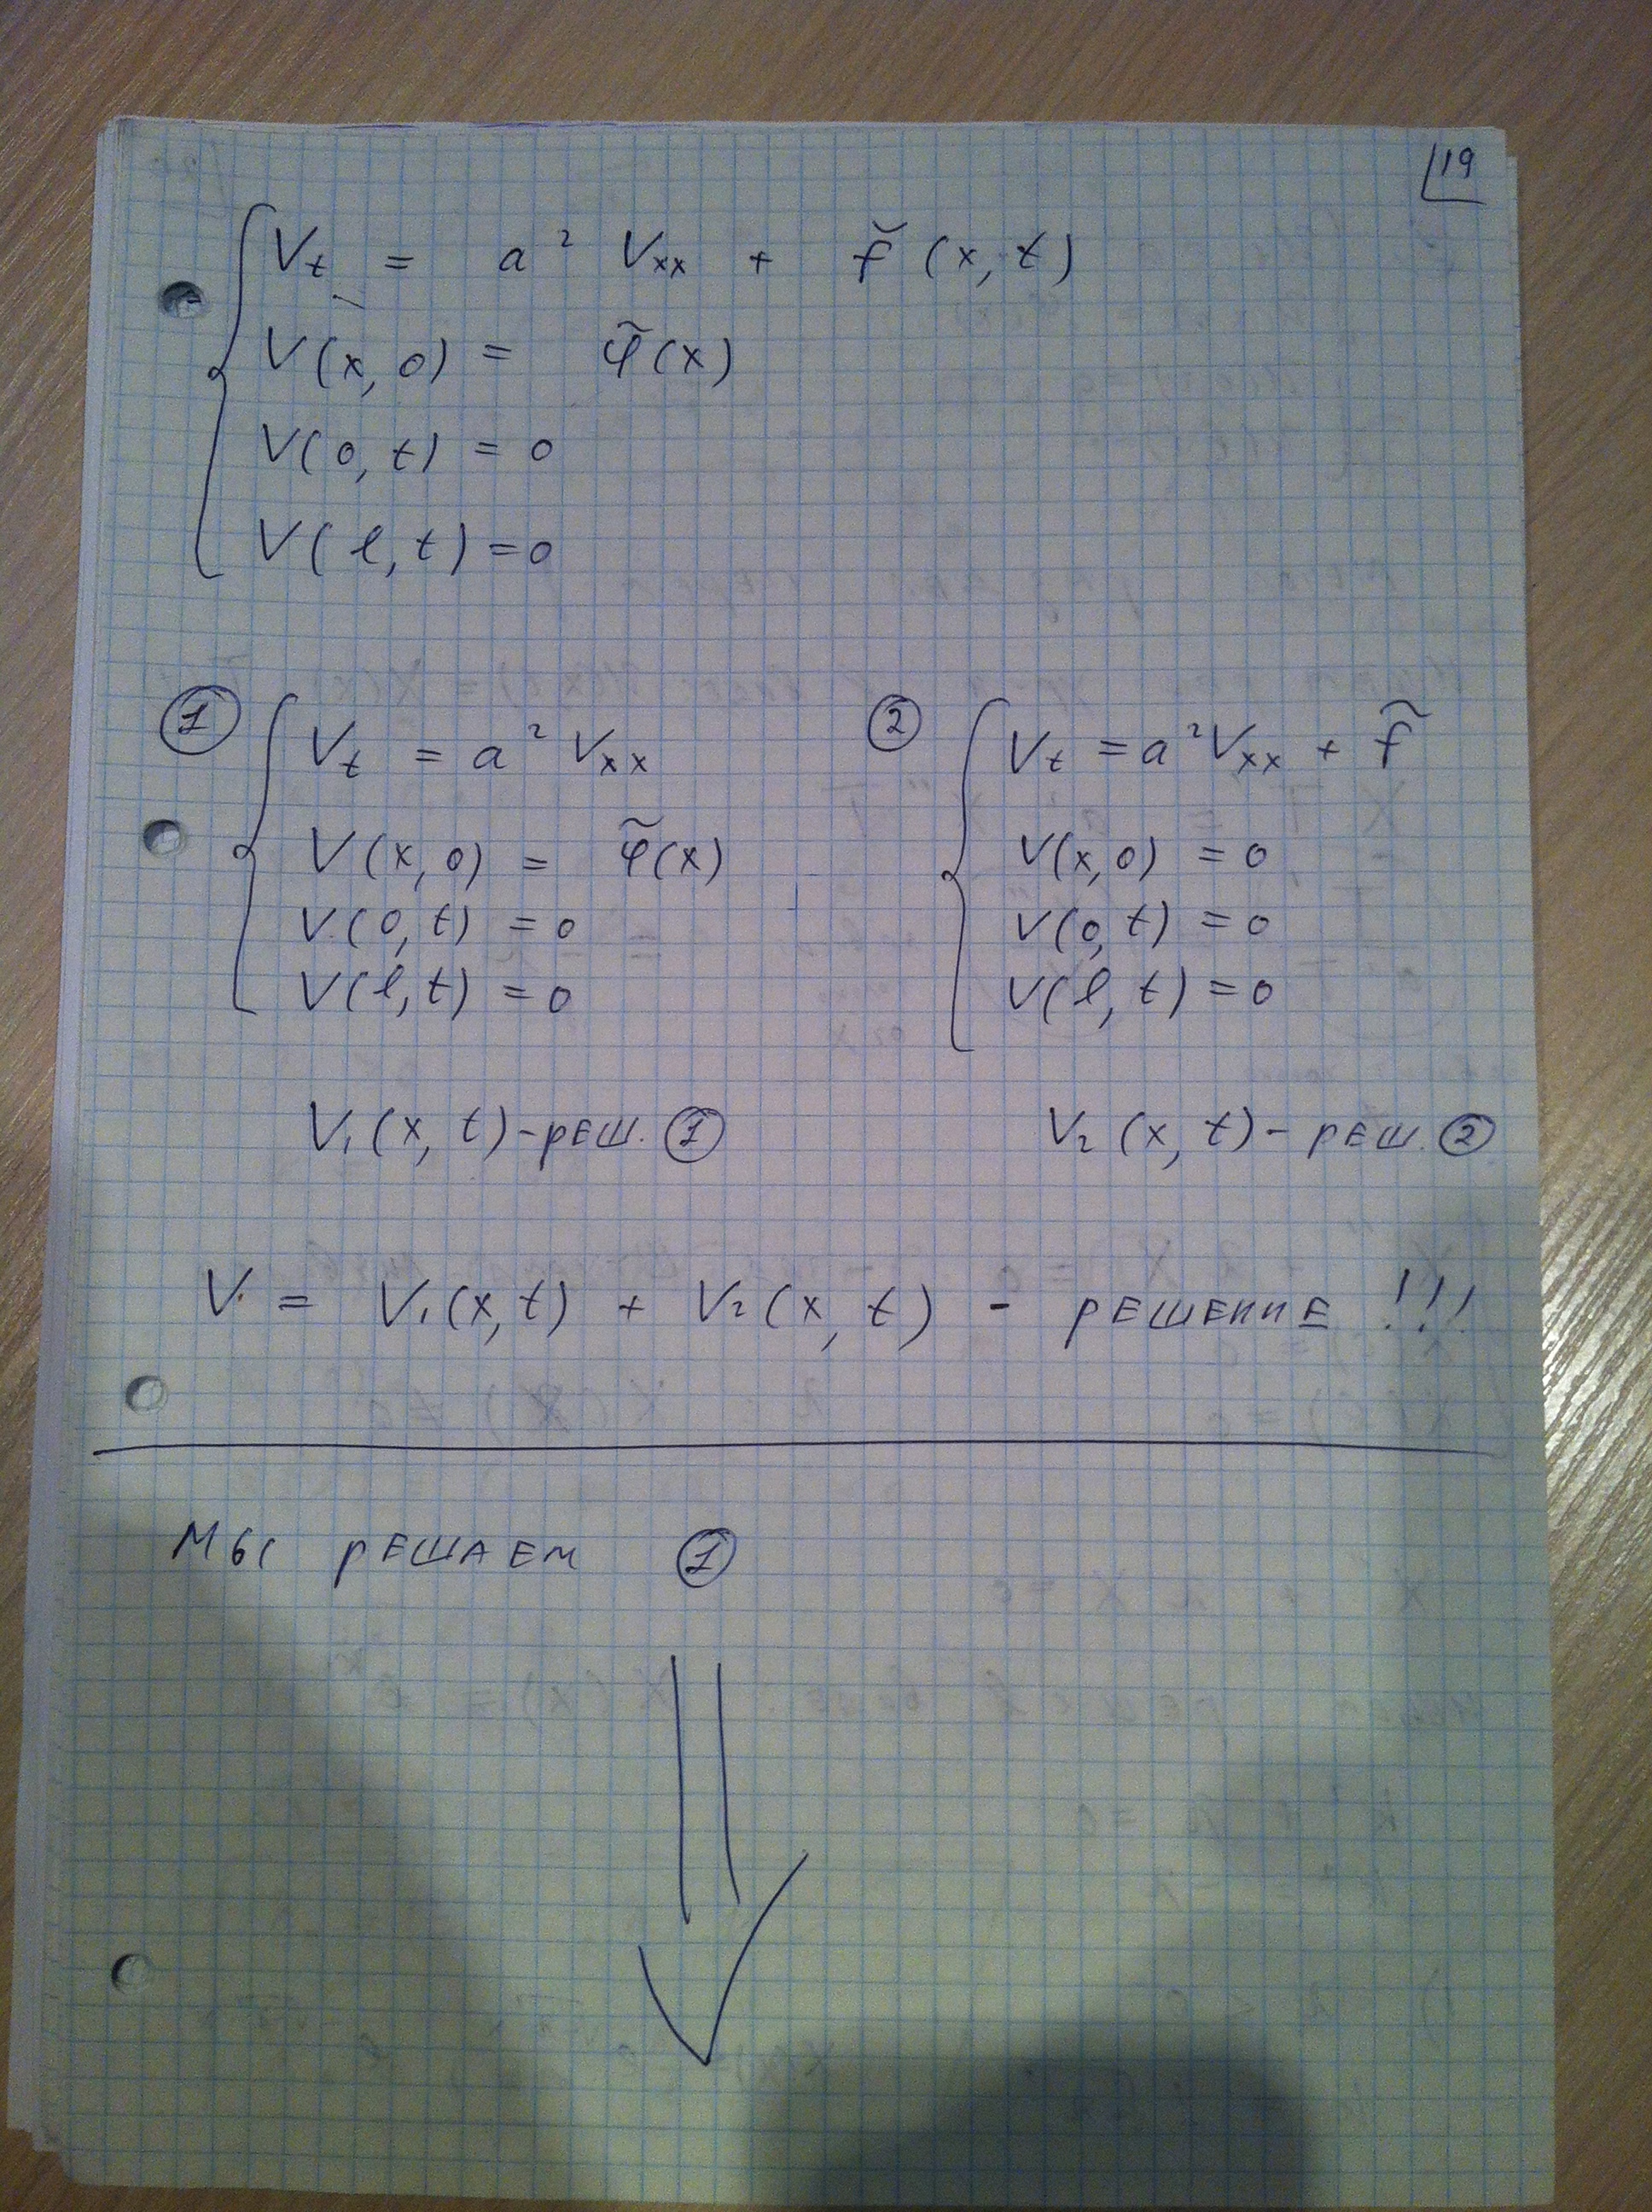 19
V_t = a² V_xx + f̃ (x, t)
V(x, 0) = φ̃(x)
V(0, t) = 0
V(ℓ, t) = 0
① V_t = a² V_xx
V(x, 0) = φ̃(x)
V(0, t) = 0
V(ℓ, t) = 0
V₁(x, t) - реш. ①
② V_t = a² V_xx + f̃
V(x, 0) = 0
V(0, t) = 0
V(ℓ, t) = 0
V₂(x, t) - реш. ②
V = V₁(x, t) + V₂(x, t) - решение !!!
Мы решаем ①